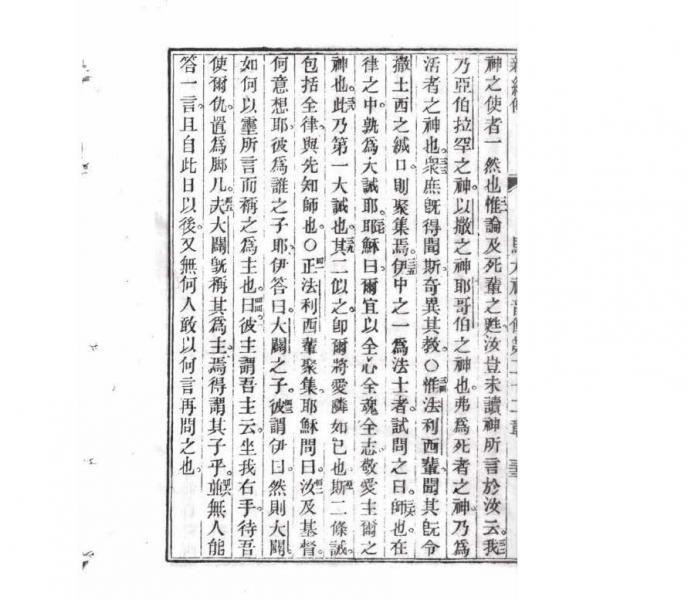 馬太福音傳第二十二章
神之使者一然也惟論及死輩之甦汝豈未讀神所言於汝云我
乃亞伯拉罕之神。以撒之神耶哥伯之神也。弗為死者之神乃為
活者之神也。衆庶既得聞斯。奇異其教。○惟法利西輩聞其既令
撒土西之緘口則聚集焉。伊中之一為法士者試問之曰。師也在
律之中孰為大誡耶。耶穌曰。爾宜以全心全魂全志敬愛主爾之
神也。此乃第一大誡也。其二似之。即爾將愛隣如己也。斯二條誡。
包括全律與先知師也。○正法利西輩聚集。耶穌問曰。汝及基督。
何意想耶。彼為誰之子耶。伊答曰。大闢之子。彼謂伊曰。然則大闢
如何以靈所言而稱之為主也。曰彼主謂吾主云。坐我右手。待吾
使爾仇置為脚几。夫大闢既稱其為主。焉得謂其子乎。並無人能
答一言。且自此日以後。又無何人敢以何言再問之也。